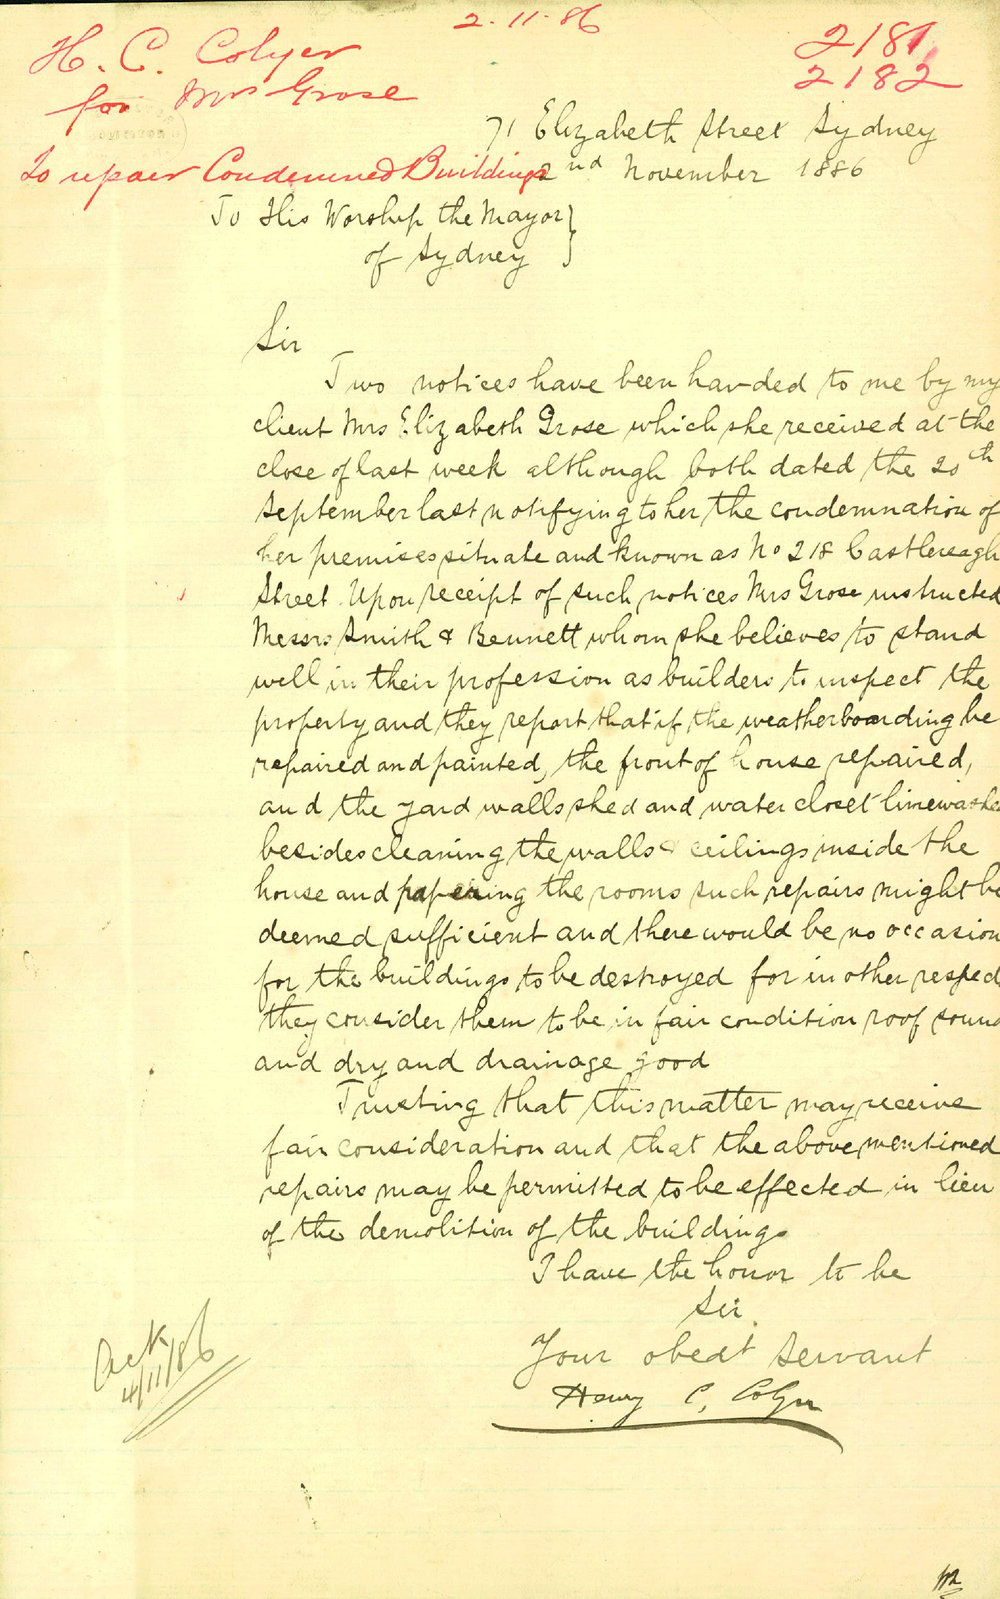 2.11.86
H. C. Colyer
for Mrs Grose
To repair Condemned Buildings
2181
2182
71 Elizabeth Street Sydney
2nd November 1886
To His Worship the Mayor
of Sydney
Sir
Two notices have been handed to me by my
client Mrs Elizabeth Grose which she received at the
close of last week although both dated the 20th
September last notifying to her the condemnation of
her premises situate and known as No 218 Castlereagh
Street. Upon receipt of such notices Mrs Grose instructed
Messrs Smith & Bennett whom she believes to stand
well in their profession as builders to inspect the
property and they report that if the weatherboarding be
repaired and painted, the front of house repaired,
and the yard walls shed and water closet limewashed
besides cleaning the walls & ceilings inside the
house and papering the rooms such repairs might be
deemed sufficient and there would be no occasion
for the buildings to be destroyed for in other respects
they consider them to be in fair condition roof sound
and dry and drainage good
Trusting that this matter may receive
fair consideration and that the above mentioned
repairs may be permitted to be effected in lieu
of the demolition of the buildings
I have the honor to be
Sir
Your obedt servant
Henry C. Colyer
Ack
4/11/86